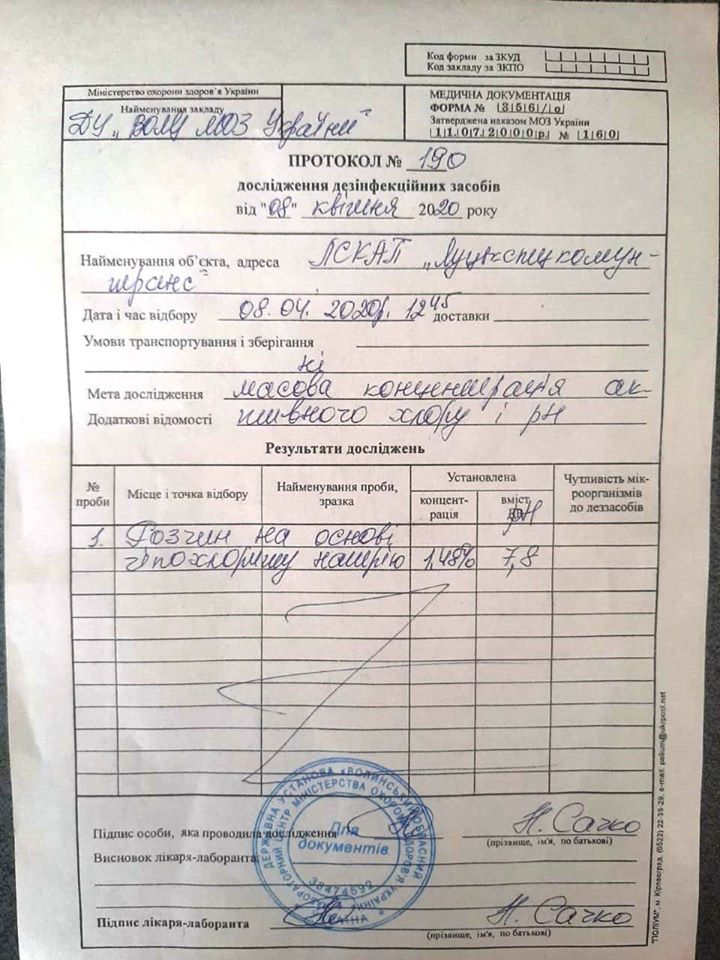 Код форми за ЗКУД
Код закладу за ЗКПО
Міністерство охорони здоров'я України
Найменування закладу
ДУ „ВОЛЦ МОЗ України"
МЕДИЧНА ДОКУМЕНТАЦІЯ
ФОРМА № 356/о
Затверджена наказом МОЗ України
11.07.2000р. № 160
ПРОТОКОЛ № 190
дослідження дезінфекційних засобів
від "08" квітня 2020 року
Найменування об'єкта, адреса ЛСКАП „Луцькспецкомун-
транс"
Дата і час відбору 08.04.2020р. 12 45 доставки
Умови транспортування і зберігання
Мета дослідження масова концентрація ак-
Додаткові відомості тивного хлору і рН
Результати досліджень
№ проби
Місце і точка відбору
Найменування проби, зразка
Установлена
концент-рація
вміст
рН
Чутливість мік-роорганізмів до деззасобів
1. Розчин на основі
гіпохлориту натрію 1,48% 7,8
Підпис особи, яка проводила дослідження Н. Сачко
(прізвище, ім'я, по батькові)
Висновок лікаря-лаборанта
Підпис лікаря-лаборанта Н. Сачко
(прізвище, ім'я, по батькові)
Для
документів
38474592
"ПОЛІУМ", м. Кіровоград, (0522) 22-39-29, e-mail: polium@ukrpost.net